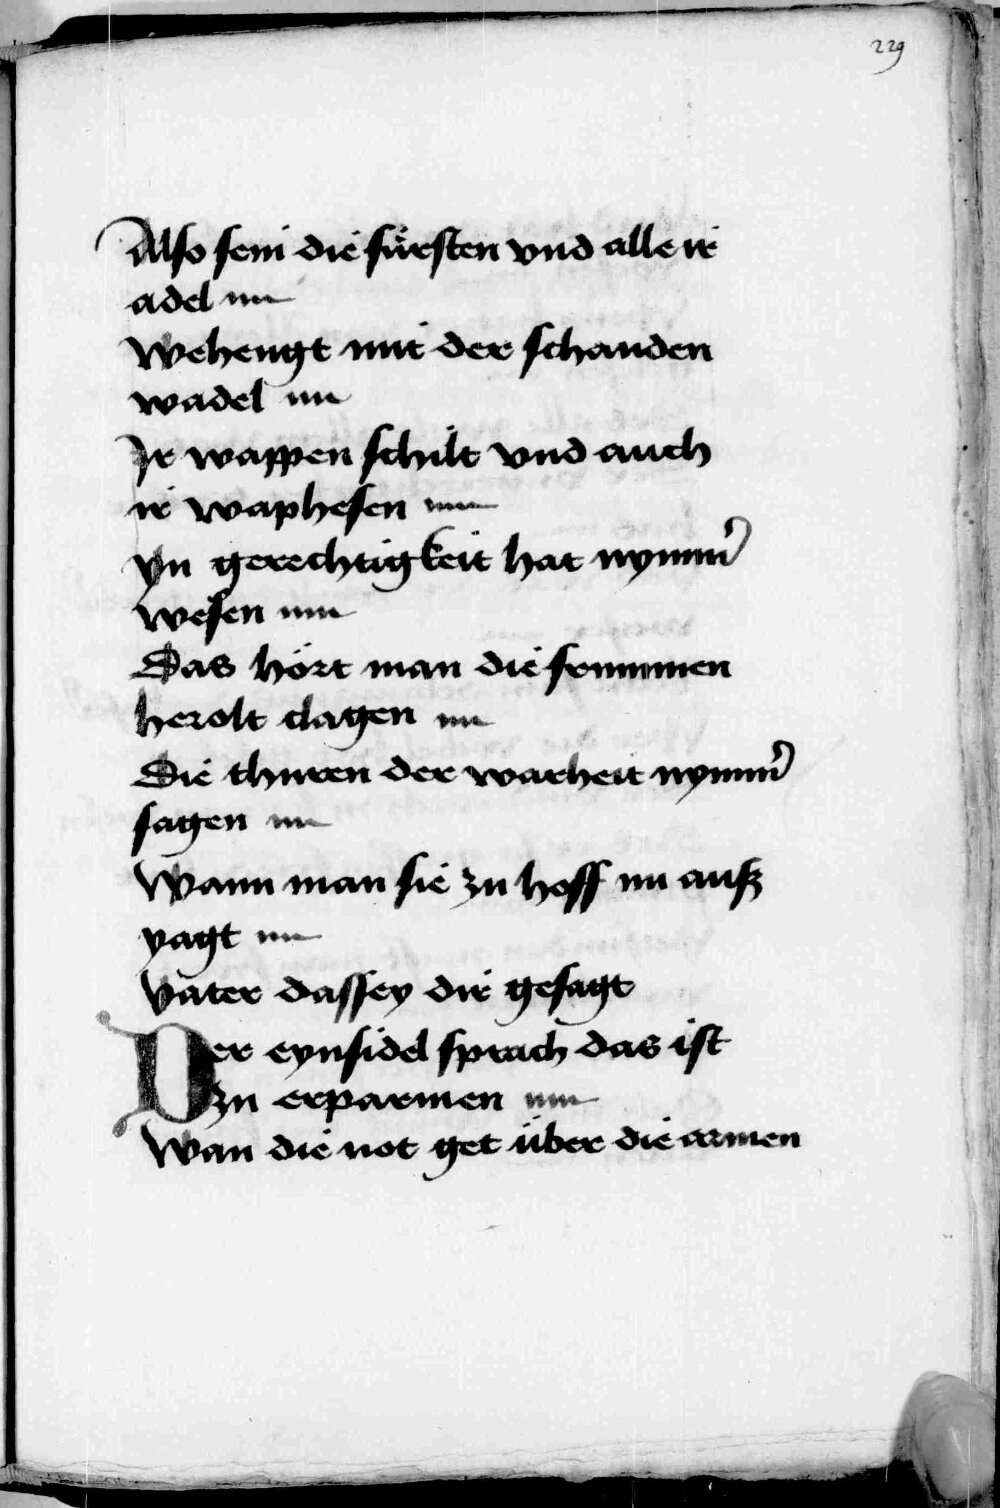 229
Also sein die fürsten vnd alle ir
adel
Wehengt mit der schanden
wadel
Ir wappen schilt vnd auch
ir waphesen
Vn gerechtigkeit hat nymm̄
wesen
Das hört man die frummen
herolt clagen
Die thuren der warheit nymm̄
sagen
Wann man sie zu hoff nu ausz
yagt
Vater dassey dir gesagt
Der eynsidel sprach das ist
zu erparmen
Wan die not get über die armen